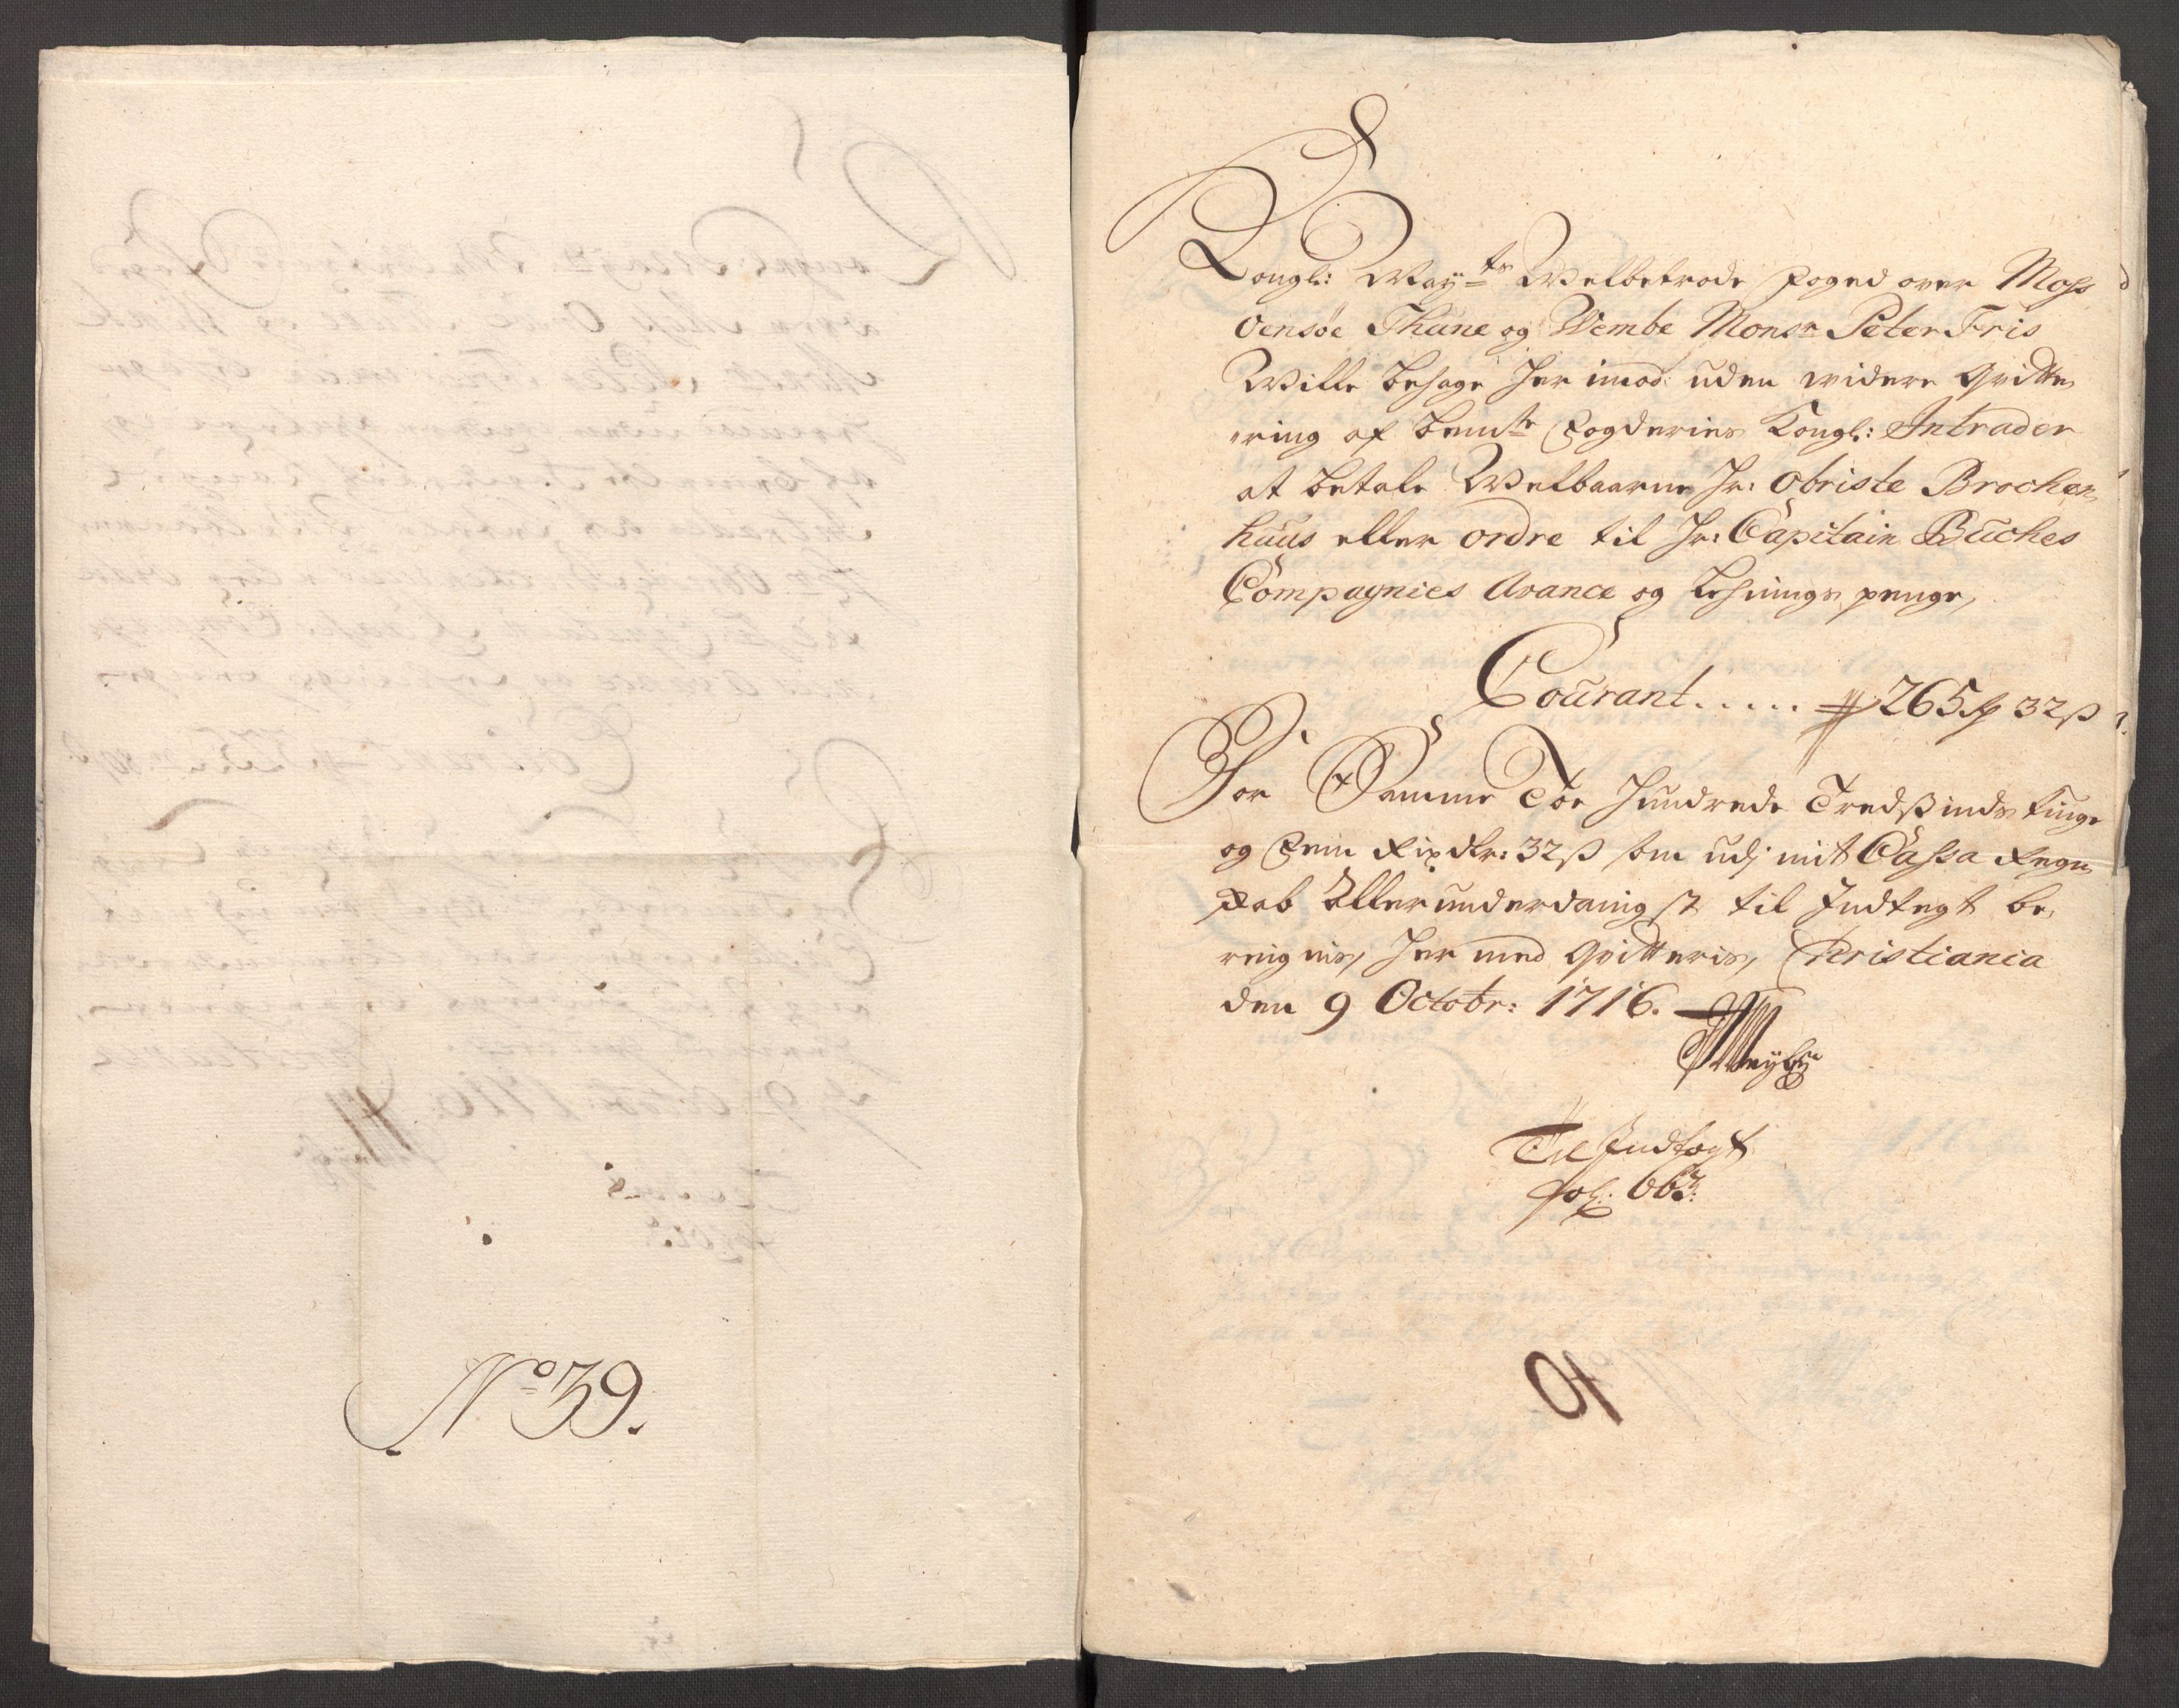 No 39.
Kongl: May:ts Welbetrode foged over Moss
Oensøe Thune og Wembe Monsr Peter Fris
Wille behage her imod uden widere Qvitte,
,ring af bemte Fogderies Kongl: Intrader
at betale Welbaarne Hr: Obriste Brochen,
huus eller ordre til Hr: Capitain Buches
Compagnies Avance og Lehnings penge,
Courant..... 265 rdr 32 ß
For Samme Toe Hundrede Tredßinds tiuge
og Fem Rixdlr: 32 ß som udj mit Cassa Regn,
skab Allerunderdanigst til Indtegt be,
reignes, her med Qvitteris, Christiania
den 9 Octobr: 1716.
Til Indtegt
fol: 663: